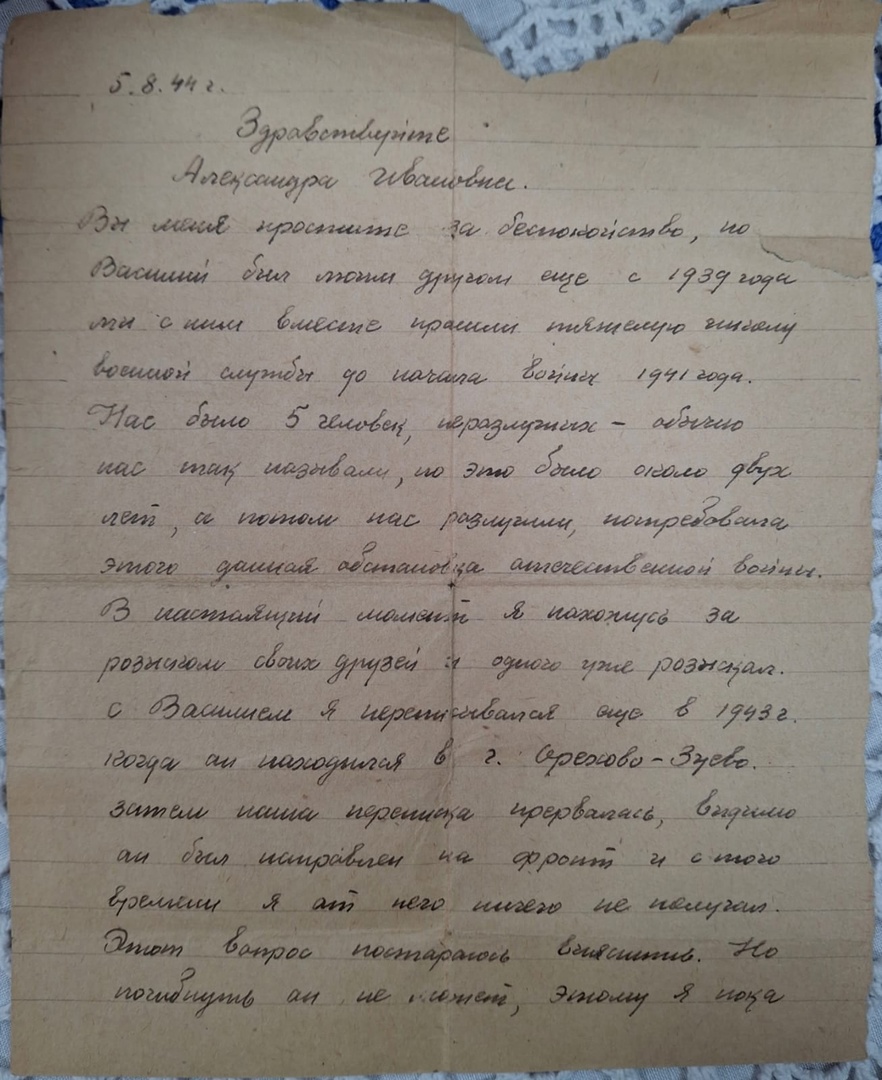 5.8.44 г.
Здравствуйте
Александра Ивановна.
Вы меня простите за беспокойство, но
Василий был моим другом еще с 1939 года
мы с ним вместе прошли тяжелую школу
военной службы до начала войны 1941 года.
Нас было 5 человек, неразлучных – обычно
нас так называли, но это было около двух
лет, а потом нас разлучили, потребовала
этого данная обстановка отечественной войны.
В настоящий момент я нахожусь за
розыском своих друзей и одного уже розыскал.
с Василием я переписывался еще в 1943 г.
когда он находился в г. Орехово-Зуево.
затем наша переписка прервалась, видимо
он был направлен на фронт и с того
времени я от него ничего не получал.
Этот вопрос постараюсь выяснить. Но
погибнуть он не может, этому я пока